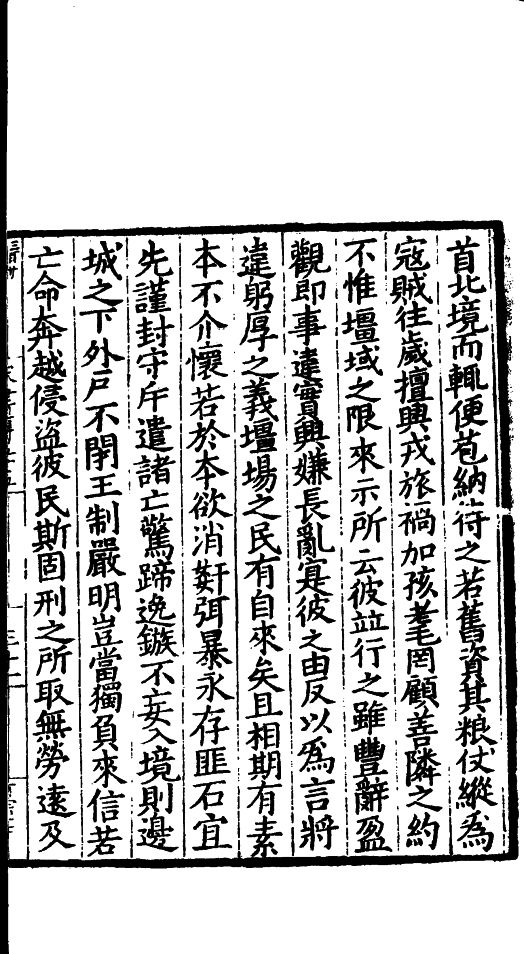 首北境而輒便苞納待之若舊資其粮仗縱爲
寇賊往歲擅興戎旅禍加孩耄罔顧善隣之約
不惟壃域之限來示所云彼竝行之雖豐辭盈
觀即事違實興嫌長亂寔彼之由反以爲言將
違躬厚之義壃場之民有自來矣且相期有素
本不介懷若於本欲消姧弭暴永存匪石宜
先謹封守斥遣諸亡驚蹄逸鏃不妄入境則邊
城之下外戶不閉王制嚴明豈當獨負來信若
亡命奔越侵盜彼民斯固刑之所取無勞遠及